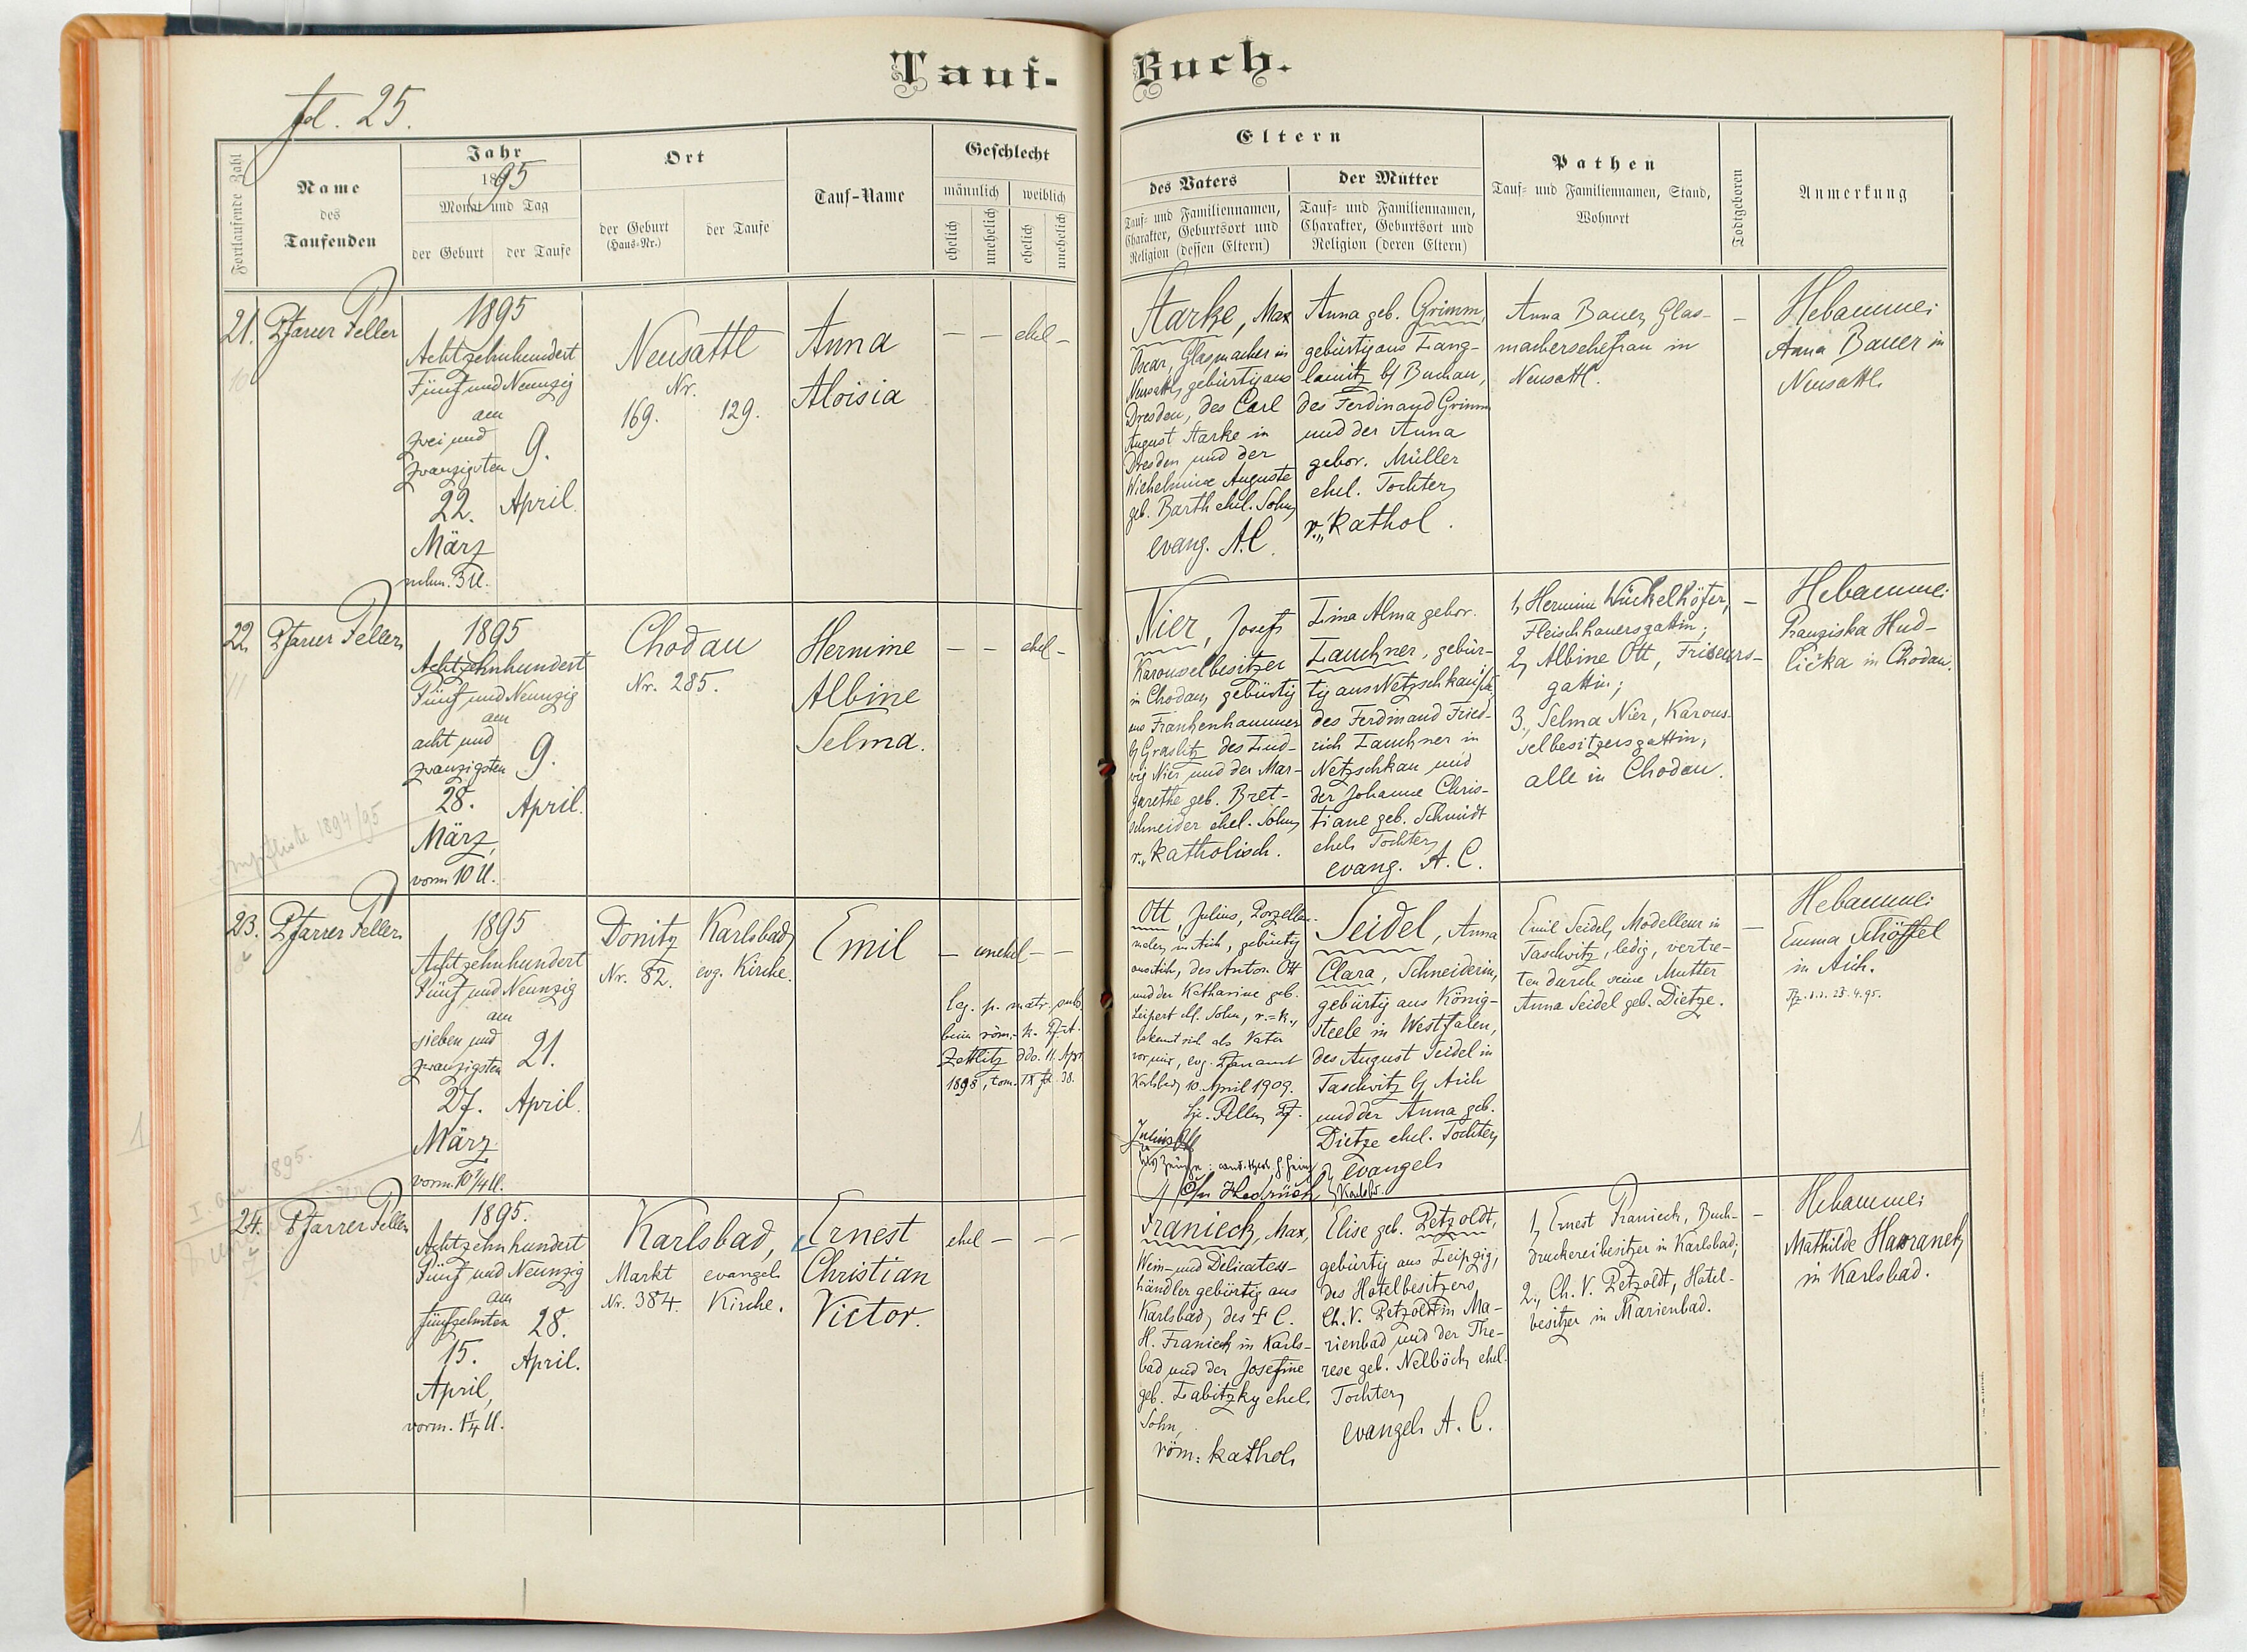 Tauf-
Buch.
fol. 25.
Fortlaufende Zahl
Name
des
Taufenden
Jahr
1895
Monat und Tag
der Geburt
der Taufe
Ort
der Geburt
(Haus-Nr.)
der Taufe
Tauf-Name
Geschlecht
männlich
weiblich
ehelich
unehelich
ehelich
unehelich
Eltern
des Vaters
Tauf- und Familiennamen,
Charakter, Geburtsort und
Religion (dessen Eltern)
der Mutter
Tauf- und Familiennamen,
Charakter, Geburtsort und
Religion (deren Eltern)
Pathen
Tauf- und Familiennamen, Stand,
Wohnort
Todtgeboren
Anmerkung
21.
Pfarrer Feller
1895
Achtzehnhundert
Fünf und Neunzig
am
zwei und
zwanzigsten
22.
März
nchm. 3 U.
9.
April.
Neusattl
Nr.
169.
129.
Anna
Aloisia
— — ehel —
Starke, Max
Oscar, Glasmacher in
Neusattl, gebürtig aus
Dresden, des Carl
August Starke in
Dresden und der
Wilhelmine Auguste
geb. Barth ehel. Sohn,
evang. A.C.
Anna geb. Grimm,
gebürtig aus Lang-
lamitz b/ Buchau,
des Ferdinand Grimm
und der Anna
gebor. Müller
ehel. Tochter,
r. kathol.
Anna Bauer, Glas-
macherschefrau in
Neusattl.
—
Hebamme:
Anna Bauer in
Neusattl.
22.
11
Pfarrer Feller
1895
Achtzehnhundert
Fünf und Neunzig
am
acht und
zwanzigsten
28.
März,
vorm 10 U.
9.
April.
Chodau
Nr. 285.
Hermine
Albine
Selma.
— — ehel —
Nier, Josef,
Karousselbesitzer
in Chodau, gebürtig
aus Frankenhammer
b/ Graslitz des Lud-
wig Nier und der Mar-
garethe geb. Bret-
schneider ehel. Sohn,
r. katholisch.
Lina Alma gebor.
Lauchner, gebür-
tig aus Netzschkau
des Ferdinand Fried-
rich Lauchner in
Netzschkau und
der Johanne Chris-
tiane geb. Schmidt
ehel. Tochter,
evang. A. C.
1, Hermine Wückelhöfer,
Fleischhauersgattin;
2, Albine Ott, Friseurs-
gattin;
3., Selma Nier, Karous-
selbesitzersgattin,
alle in Chodau.
—
Hebamme:
Franziska Hud-
lička in Chodau.
Impfliste 1894/95
23.
Pfarrer Feller
1895
Achtzehnhundert
Fünf und Neunzig
am
sieben und
zwanzigsten
27.
März
vorm. 10 1/4 U.
21.
April.
Donitz
Nr. 82.
Karlsbad,
evg. Kirche.
Emil
— unehel — —
leg. p. matr. subs.
beim röm.-k. Pf.A.
Zettlitz ddo. 11. Apr.
1898, tom. IX fol. 38.
Ott, Julius, Porzellan-
maler, in Aich, gebürtig
aus Aich, des Anton Ott
und der Katharine geb.
Leipert ehl. Sohn, r.=k.,
bekennt sich als Vater
vor mir, evg. Pfarramt
Karlsbad, 10. April 1909.
Lic. Feller, Pf.
Julius Ott
als Zeuge:
Seidel, Anna
Clara, Schneiderin,
gebürtig aus König-
steele in Westfalen,
des August Seidel in
Taschwitz b/ Aich
und der Anna geb.
Dietze ehel. Tochter,
evangel.
Emil Seidel, Modelleur in
Taschwitz, ledig, vertre-
ten durch seine Mutter
Anna Seidel geb. Dietze.
—
Hebamme:
Emma Schöffel
in Aich.
1
I. 1895.
24.
Pfarrer Feller
1895.
Achtzehnhundert
Fünf und Neunzig
am
fünfzehnten
15.
April,
vorm. 1 1/4 U.
28.
April.
Karlsbad,
Markt
Nr. 384.
evangel.
Kirche.
Ernest
Christian
Victor.
ehel — — —
Franieck, Max,
Wein- und Delicatess-
händler gebürtig aus
Karlsbad, des F. C.
H. Franieck in Karls-
bad und der Josefine
geb. Labitzky ehel.
Sohn,
röm. kathol.
Elise geb. Petzoldt,
gebürtig aus Leipzig,
des Hotelbesitzers
Ch. V. Petzoldt in Ma-
rienbad und der The-
rese geb. Nelböck, ehel.
Tochter,
evangel. A. C.
1, Ernest Franieck, Buch-
druckereibesitzer in Karlsbad;
2., Ch. V. Petzoldt, Hotel-
besitzer in Marienbad.
—
Hebamme:
Mathilde Hawranek
in Karlsbad.